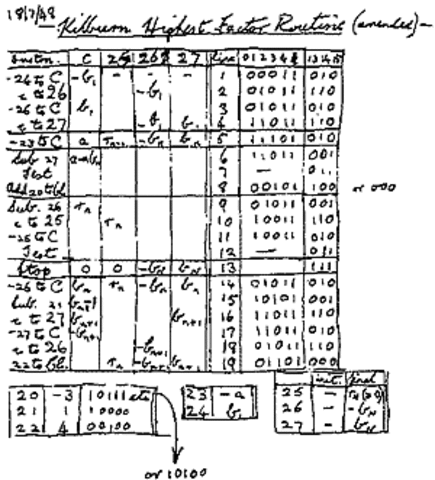 18/7/48
Kilburn Highest Factor Routine (amended)-
Instn. C 25 26 27 line 0 1 2 3 4 5 13 14 15
-24 to C -b₁ - - - 1 00011 010
c to 26 -b₁ 2 01011 110
-26 to C b₁ 3 01011 010
c to 27 -b₁ b₁ 4 11011 110
-23 to C a -bₙ bₙ 5 11101 010
Sub 27 a-bₙ 6 11011 001
Test 7 — 011
Add 20 to bl. 8 00101 100 or 000
Sub. 26 rₙ 9 01011 001
c to 25 rₙ 10 10011 110
-25 to C 11 10011 010
Test 12 — 011
Stop 0 0 -bₙ bₙ 13 111
-26 to C bₙ rₙ -bₙ bₙ 14 01011 010
Sub. 21 15 10101 001
c to 27 bₙ₊₁ bₙ₊₁ 16 11011 110
-27 to C -bₙ₊₁ 17 11011 010
c to 26 -bₙ₊₁ 18 01011 110
22 to bl. rₙ -bₙ₊₁ bₙ₊₁ 19 01101 000
20 -3 10111 etc
21 1 10000
22 4 00100
or 10100
23 -a
24 b₁
init. final
25 -
26 - -bₙ
27 - bₙ